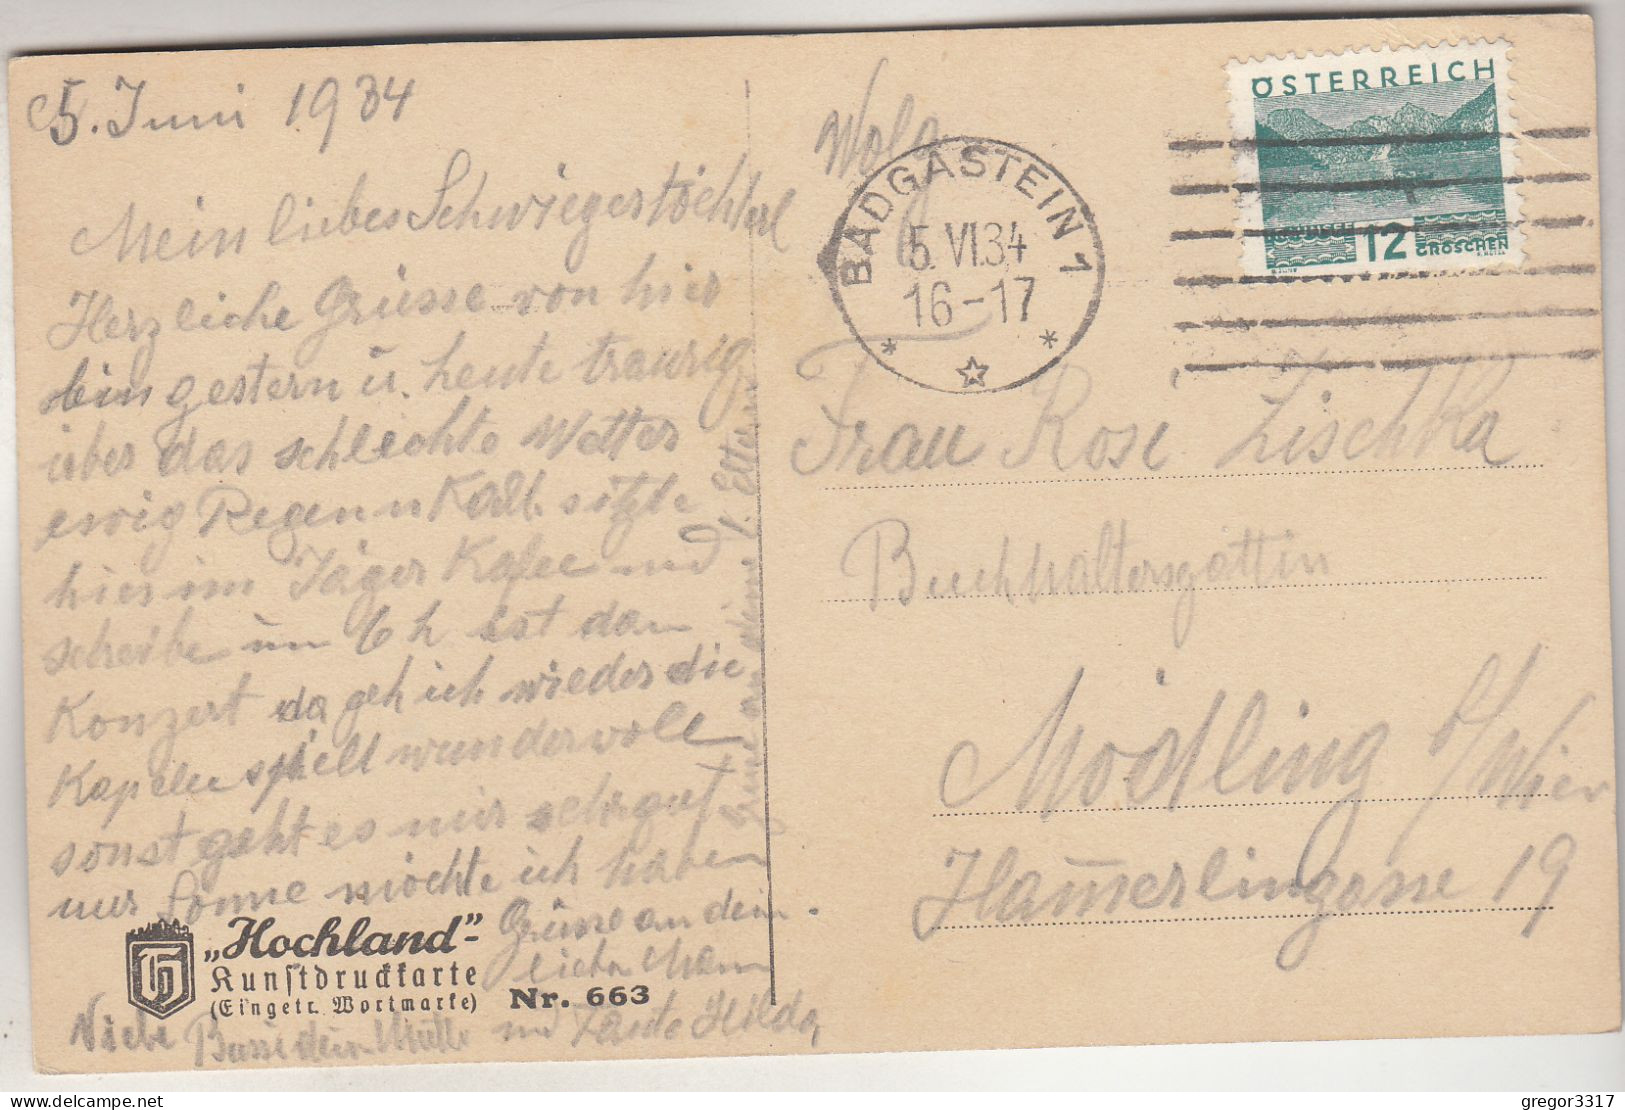 5. Juni 1934
Mein liebes Schwiegertöchterl
Herzliche Grüsse von hier
bin gestern u. heute traurig
über das schlechte Wetter
ewig Regen u Kalt. sitzte
hier im Jäger Kafee und
schreibe um 6 h ist dan
Konzert da geh ich wieder die
Kapelle spielt wundervoll
sonst geht es mir sehr gut
nur Sonne möchte ich haben
Grüsse an dein
lieben Mann
Bussi dein Mutti und Tante Hilda
Eltern
„Hochland"-
Kunstdruckkarte
(Eingetr. Wortmarke)
Nr. 663
BADGASTEIN 1
5. VI.34
16-17
ÖSTERREICH
12
GROSCHEN
Wolg
Frau Rosi Zischka
Buchhaltersgattin
Mödling b/Wien
Hamerlingasse 19
gregor3317